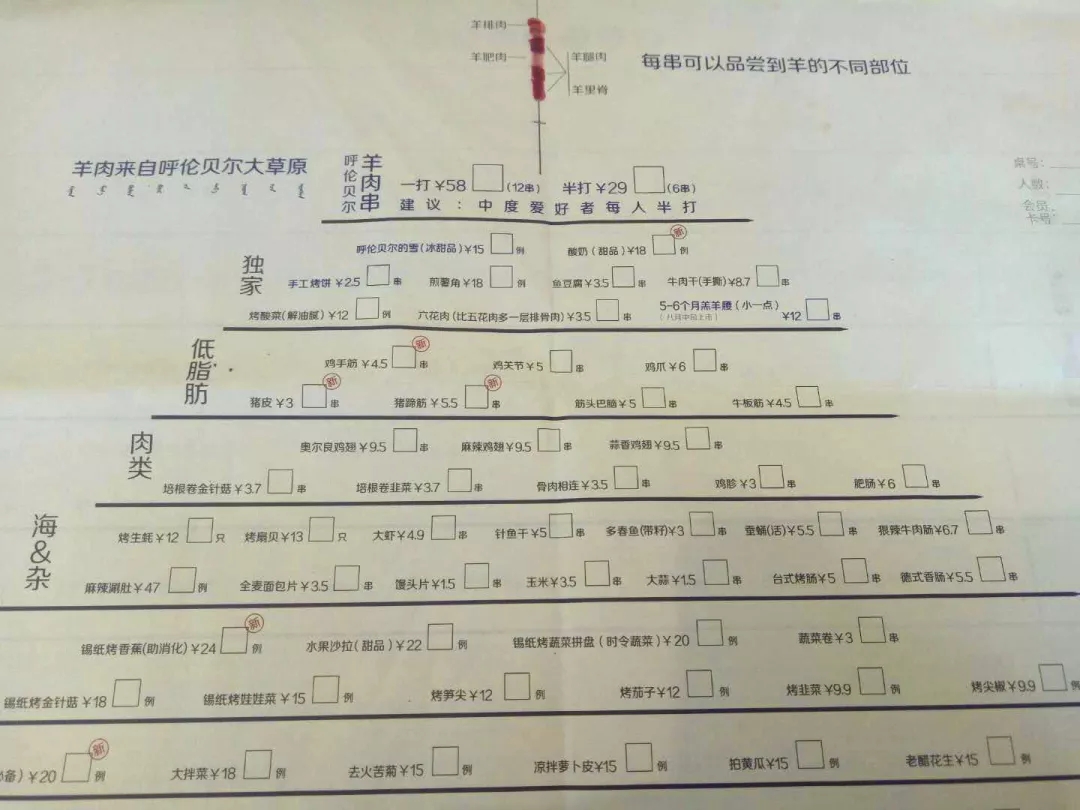 羊排肉
羊肥肉
羊腿肉
羊里脊
每串可以品尝到羊的不同部位
羊肉来自呼伦贝尔大草原
桌号:
人数:
会员
卡号:
呼伦贝尔
羊肉串
一打¥58 (12串) 半打¥29 (6串)
建议:中度爱好者每人半打
独家
呼伦贝尔的雪(冰甜品)¥15 例 酸奶(甜品)¥18 例 新
手工烤饼¥2.5 串 煎薯角¥18 例 鱼豆腐¥3.5 串 牛肉干(手撕)¥8.7 串
烤酸菜(解油腻)¥12 例 六花肉(比五花肉多一层排骨肉)¥3.5 串 5-6个月羔羊腰(小一点) ¥12 串
(八月中旬上市)
低脂肪
鸡手筋¥4.5 串 新 鸡关节¥5 串 鸡爪¥6 串
猪皮¥3 串 新 猪蹄筋¥5.5 串 新 筋头巴脑¥5 串 牛板筋¥4.5 串
肉类
奥尔良鸡翅¥9.5 串 麻辣鸡翅¥9.5 串 蒜香鸡翅¥9.5 串
培根卷金针菇¥3.7 串 培根卷韭菜¥3.7 串 骨肉相连¥3.5 串 鸡胗¥3 串 肥肠¥6 串
海&杂
烤生蚝¥12 只 烤扇贝¥13 只 大虾¥4.9 串 针鱼干¥5 串 多春鱼(带籽)¥3 串 蚕蛹(活)¥5.5 串 狠辣牛肉肠¥6.7 串
麻辣涮肚¥47 例 全麦面包片¥3.5 串 馒头片¥1.5 串 玉米¥3.5 串 大蒜¥1.5 串 台式烤肠¥5 串 德式香肠¥5.5 串
锡纸烤香蕉(助消化)¥24 例 新 水果沙拉(甜品)¥22 例 锡纸烤蔬菜拼盘(时令蔬菜)¥20 例 蔬菜卷¥3 串
锡纸烤金针菇¥18 例 锡纸烤娃娃菜¥15 例 烤笋尖¥12 例 烤茄子¥12 例 烤韭菜¥9.9 例 烤尖椒¥9.9 例
备)¥20 例 新 大拌菜¥18 例 去火苦菊¥15 例 凉拌萝卜皮¥15 例 拍黄瓜¥15 例 老醋花生¥15 例